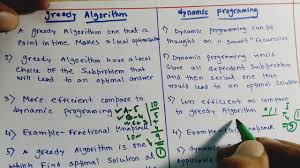 greedy Algorithm
A greedy Algorithm one that a
Point in time Makes a local optimization
2) greedy Algorithm have a Local
Choice of the Subproblem that
will Lead to an optimal answer
3) More efficient compare to
dynamic programing
4) Example- fractional Knapsack
5) A greedy Algorithm is one
which Find optimal Solution at
dynamic programing
1) Dynamic programing can be
thought on "smart" Recursion
2) Dynamic programing would
Solve all dependent Subproblem
and then select one that
would lead to an optimal Solution
3) Less efficient as compare
to greedy Algorithm 0/1
4) Example
5) dynamic